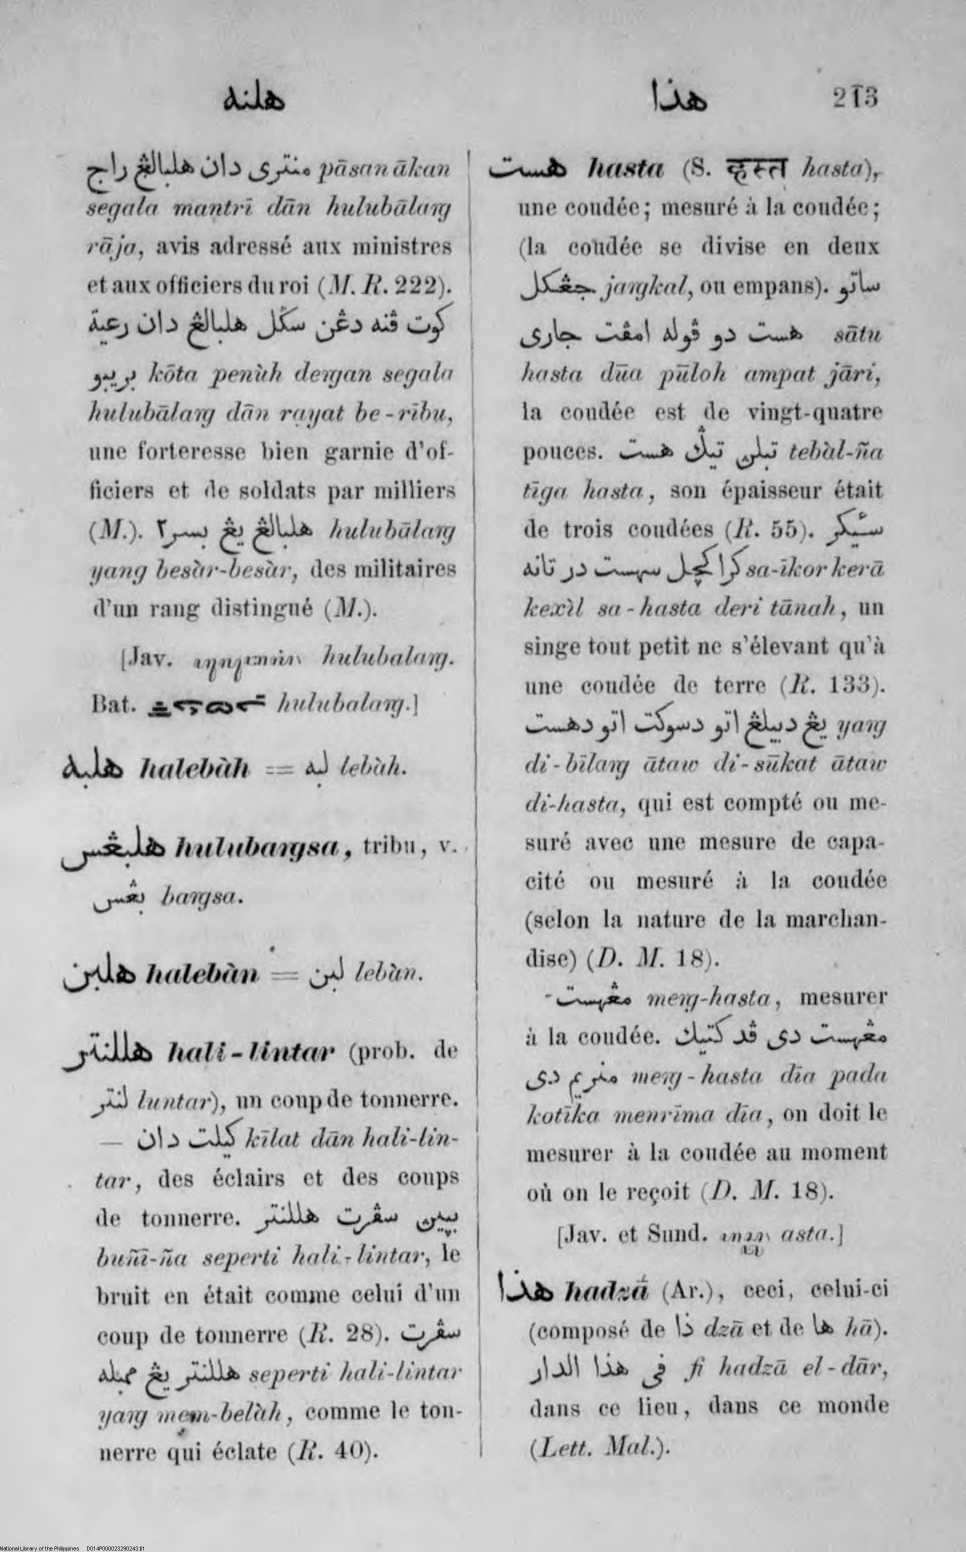 هلنه
هذا
213
منتري دان هلبالڠ راج pāsan ākan
segala mantrī dān hulubālaŋ
rāja, avis adressé aux ministres
et aux officiers du roi (M. R. 222).
كوت ڤنه دڠن سڬل هلبالڠ دان رعية
بريبو kōta penùh deŋan segala
hulubālaŋ dān rayat be-rību,
une forteresse bien garnie d'of-
ficiers et de soldats par milliers
(M.). هلبالڠ يڠ بسر٢ hulubālaŋ
yang besàr-besàr, des militaires
d'un rang distingué (M.).
[Jav. hulubalaŋ.
Bat. hulubalaŋ.]
هلبه halebàh = لبه lebàh.
هلبڠس hulubaŋsa, tribu, v.
بڠس baŋsa.
هلبن halebàn = لبن lebàn.
هللنتر hali-lintar (prob. de
لنتر luntar), un coup de tonnerre.
— كيلت دان kīlat dān hali-lin-
tar, des éclairs et des coups
de tonnerre. بيين سڤرت هللنتر
buñi-ña seperti hali-lintar, le
bruit en était comme celui d'un
coup de tonnerre (R. 28). سڤرت
هللنتر يڠ ممبله seperti hali-lintar
yaŋ mem-belàh, comme le ton-
nerre qui éclate (R. 40).
هست hasta (S. हस्त hasta),
une coudée; mesuré à la coudée;
(la coudée se divise en deux
جڠكل jaŋkal, ou empans). ساتو
هست دو ڤوله امڤت جاري sātu
hasta dūa pūloh ampat jāri,
la coudée est de vingt-quatre
pouces. تبلن تيݢ هست tebàl-ña
tīga hasta, son épaisseur était
de trois coudées (R. 55). سئيكر
كرا كچل سهست در تانه sa-īkor kerā
kexìl sa-hasta deri tānah, un
singe tout petit ne s'élevant qu'à
une coudée de terre (R. 133).
يڠ دبيلڠ اتو دسوكت اتو دهست yaŋ
di-bīlaŋ ātaw di-sūkat ātaw
di-hasta, qui est compté ou me-
suré avec une mesure de capa-
cité ou mesuré à la coudée
(selon la nature de la marchan-
dise) (D. M. 18).
مڠهست meŋ-hasta, mesurer
à la coudée. مڠهست دي ڤد كتيك
منريم دي meŋ-hasta dīa pada
kotīka menrīma dīa, on doit le
mesurer à la coudée au moment
où on le reçoit (D. M. 18).
[Jav. et Sund. asta.]
هذا hadzā (Ar.), ceci, celui-ci
(composé de ذا dzā et de ها hā).
في هذا الدار fī hadzā el-dār,
dans ce lieu, dans ce monde
(Lett. Mal.).
National Library of the Philippines D014P00002329024381